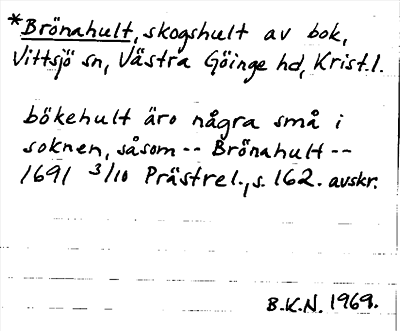 *Brönahult, skogshult av bok,
Vittsjö sn, Västra Göinge hd, Krist.l.
bökehult äro några små i
soknen, såsom -- Brönahult --
1691 3/10 Prästrel., s. 162. avskr.
B.K.N. 1969.